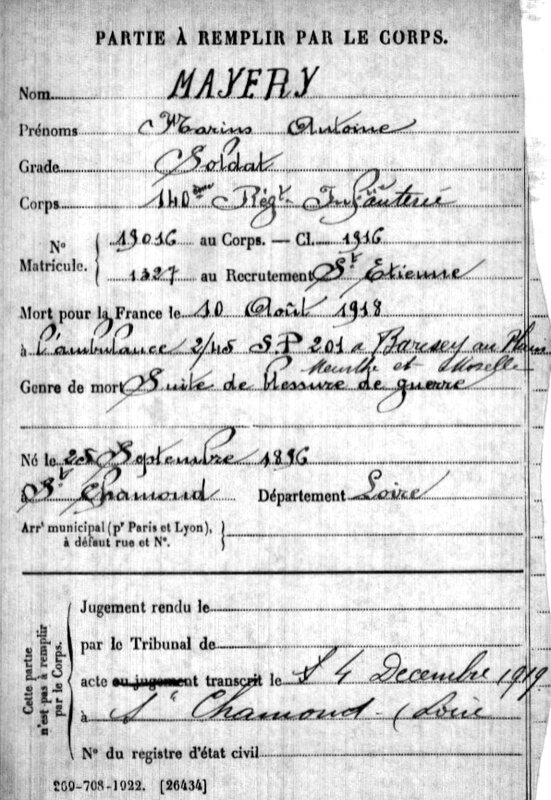 PARTIE À REMPLIR PAR LE CORPS.
Nom MAYERY
Prénoms Marius Antoine
Grade Soldat
Corps 140ème Régt Infanterie
N° Matricule. 19016 au Corps. — Cl. 1916
1327 au Recrutement St Etienne
Mort pour la France le 10 Août 1918
à l'ambulance 2/45 S.P 201 à Barisey au Plain
Meurthe et Moselle
Genre de mort Suite de blessure de guerre
Né le Septembre 1896
à St Chamond Département Loire
Arrt municipal (pr Paris et Lyon), à défaut rue et N°.
Cette partie n'est pas à remplir par le Corps.
Jugement rendu le
par le Tribunal de
acte ou jugement transcrit le 4 Decembre 1919
à St Chamond (Loire
N° du registre d'état civil
269-708-1922. [26434]